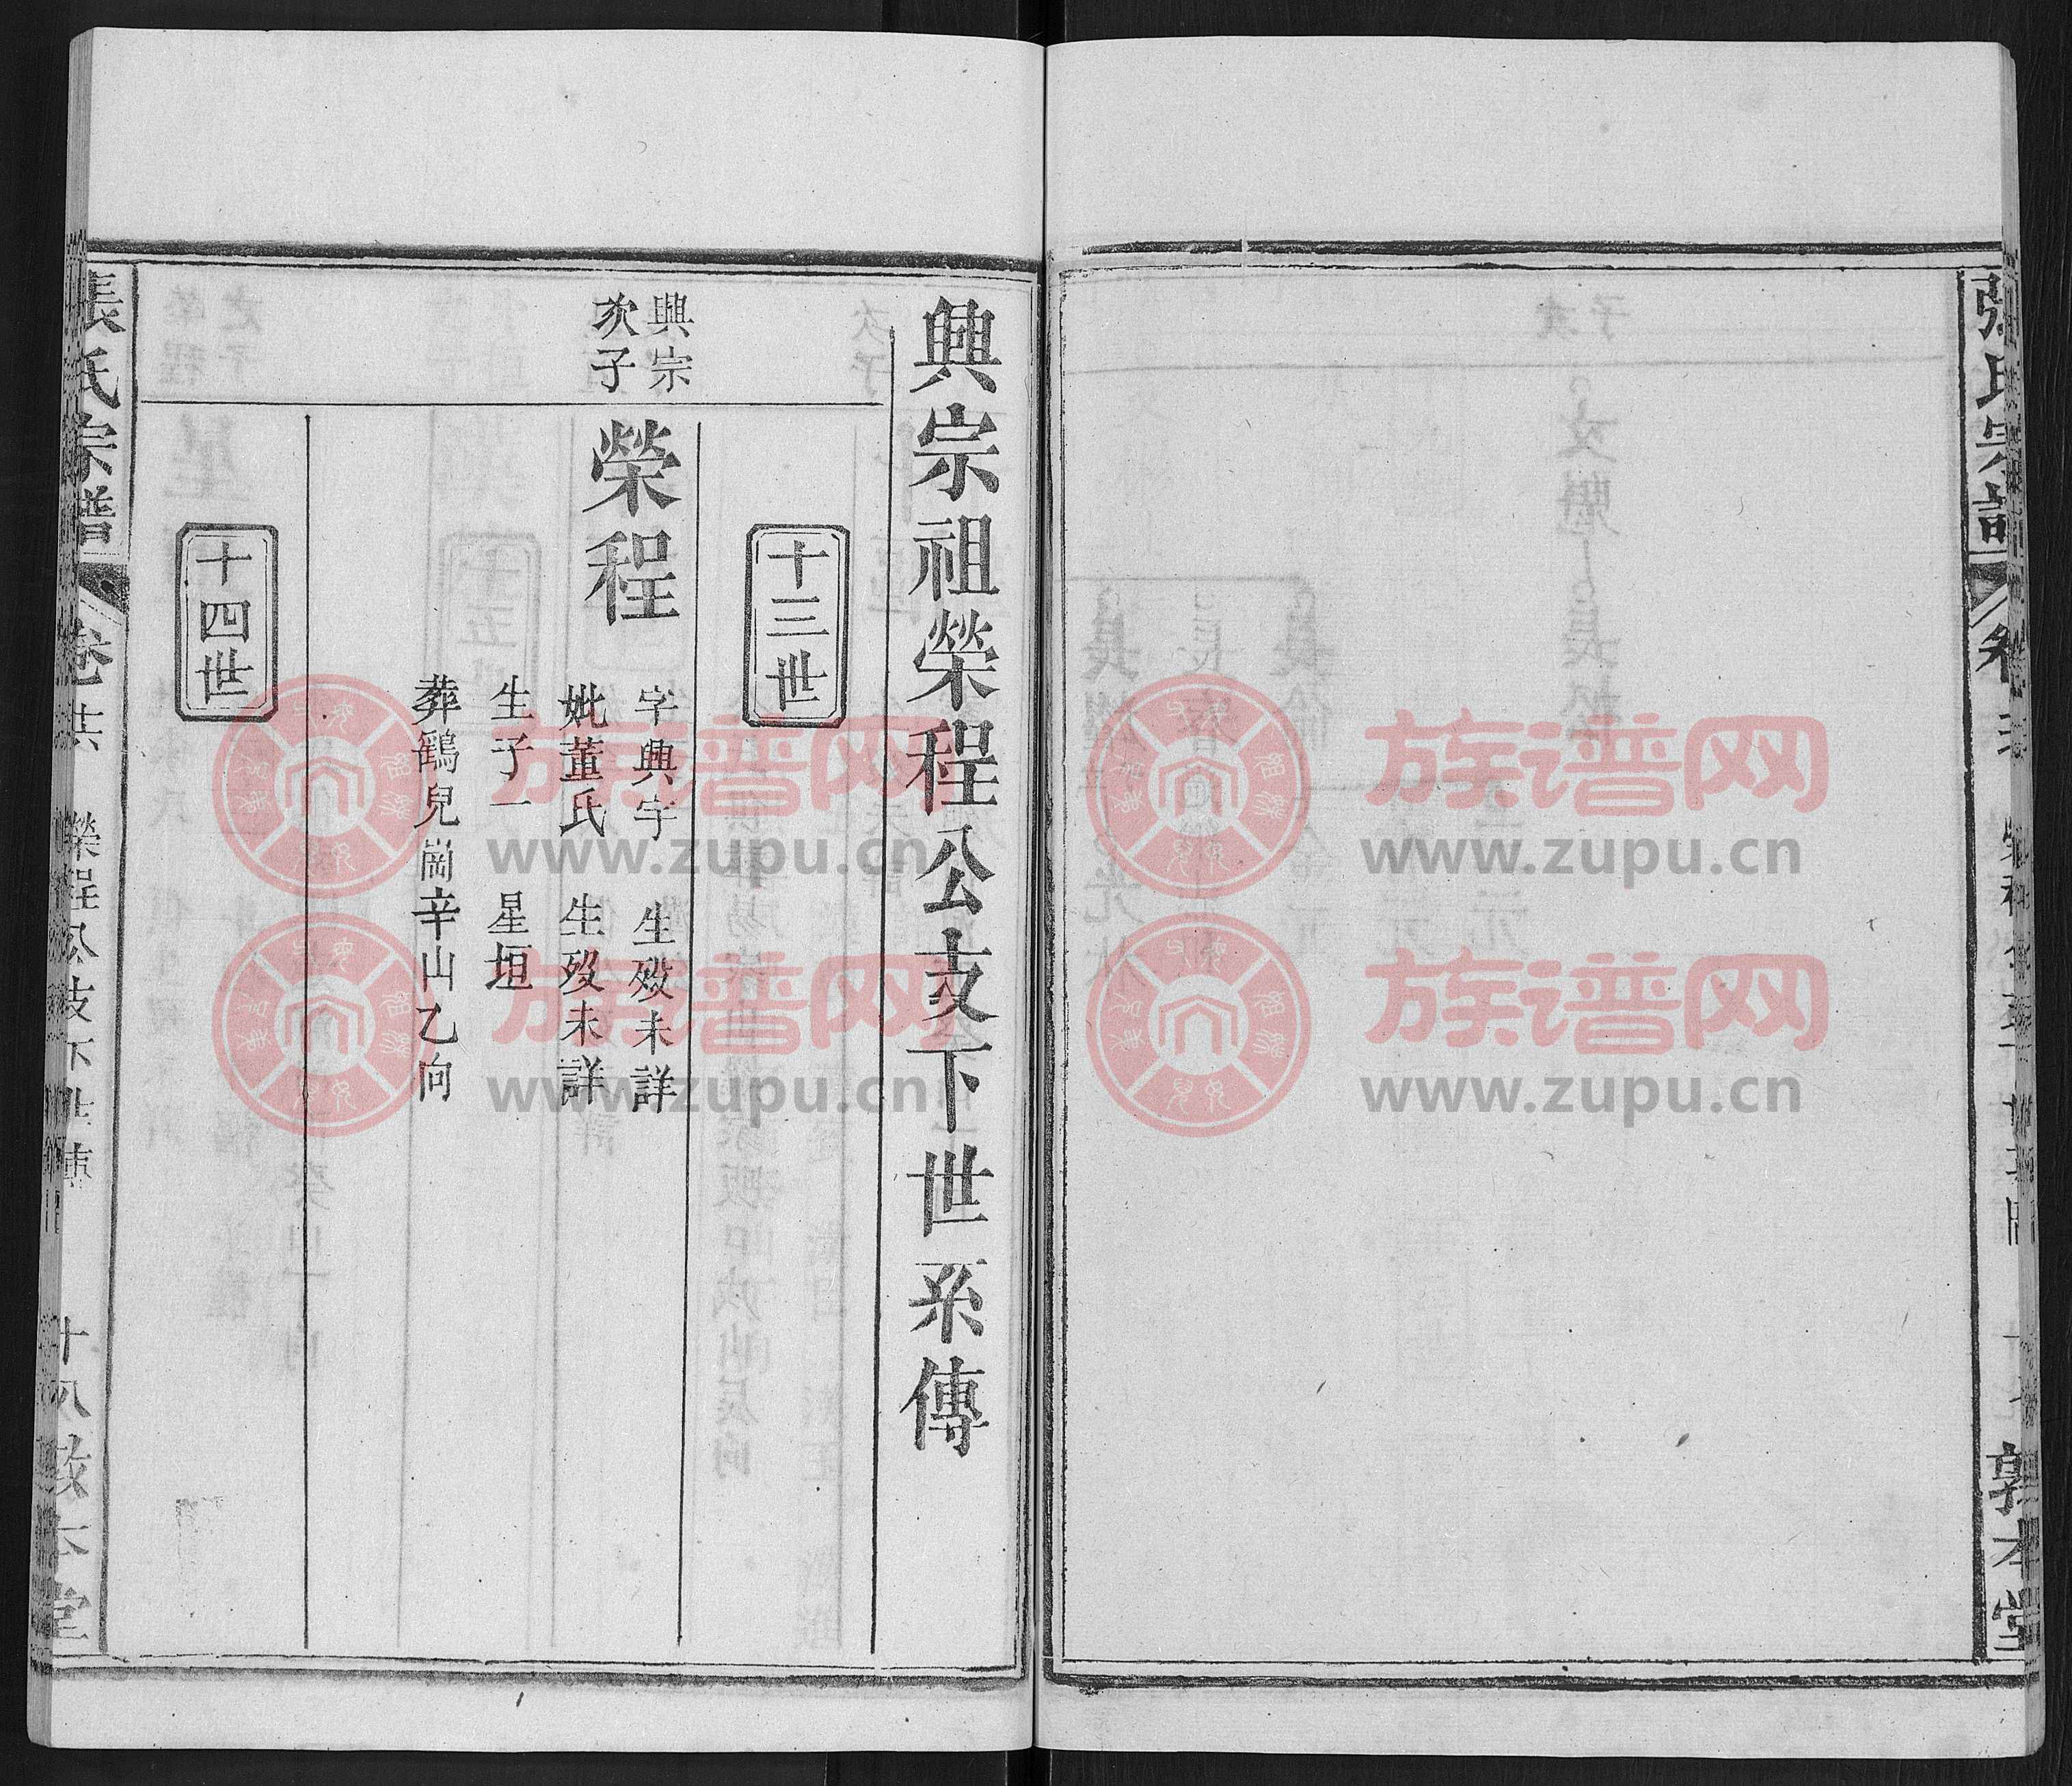 敦本堂
興宗祖榮程公支下世系傳
十三世
興宗
次子
榮程
字興宇 生歿未詳
妣董氏 生歿未詳
生子一 星垣
葬鶴兒崗辛山乙向
十四世
張氏宗譜
榮程公支下世傳
十八
族谱网
www.zupu.cn
族谱网
www.zupu.cn
族谱网
www.zupu.cn
族谱网
www.zupu.cn